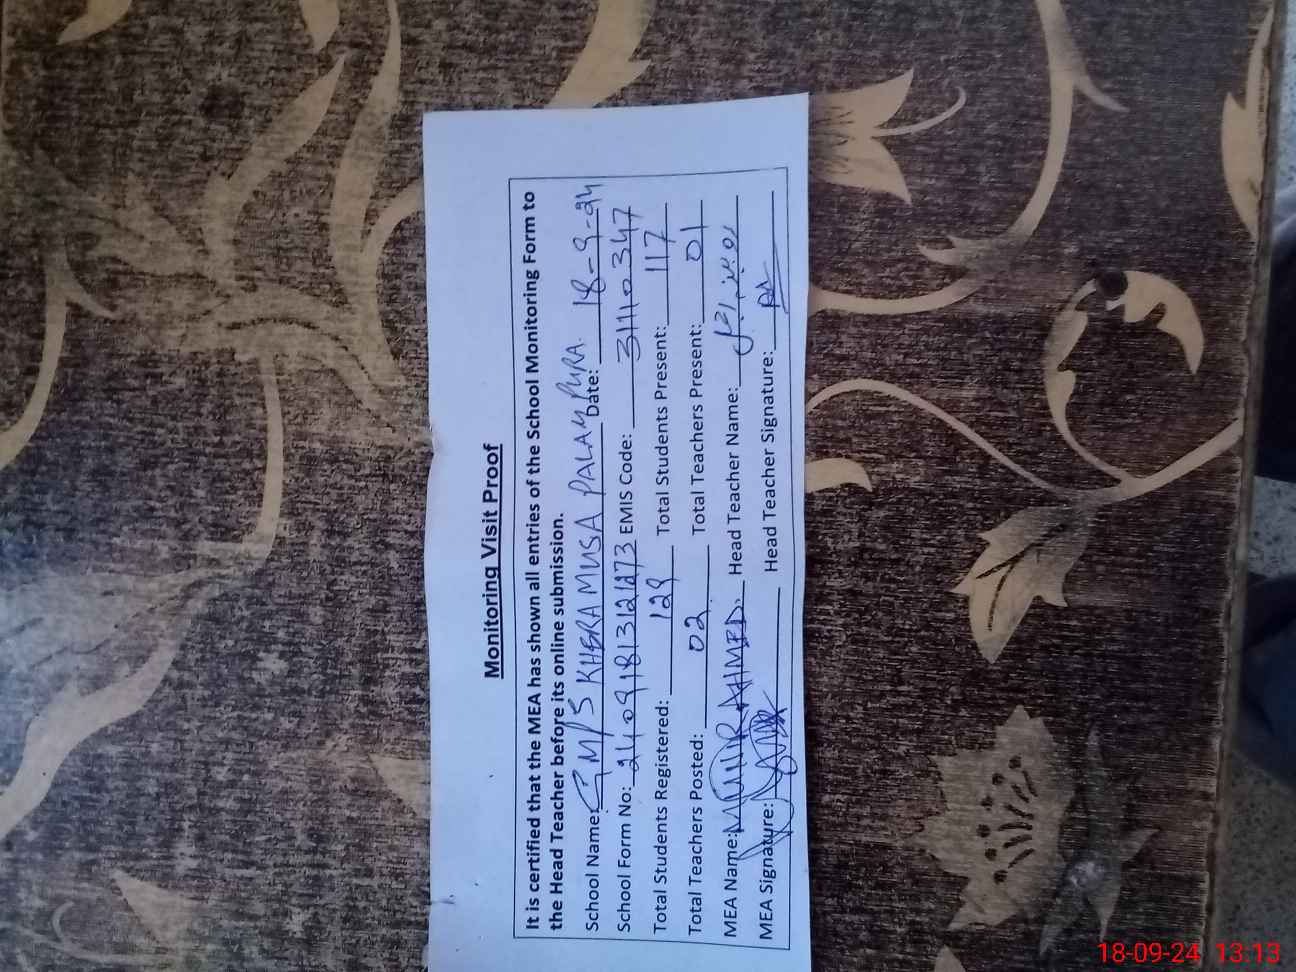 Monitoring Visit Proof
It is certified that the MEA has shown all entries of the School Monitoring Form to
the Head Teacher before its online submission.
School Name: GMPS KHERA MUSA PALAMPURA. Date: 18-9-24
School Form No: 24091813121273 EMIS Code: 31110347
Total Students Registered: 129 Total Students Present: 117
Total Teachers Posted: 02 Total Teachers Present: 01
MEA Name: MUNIR AHMED. Head Teacher Name:
MEA Signature: Head Teacher Signature:
18-09-24 13:13